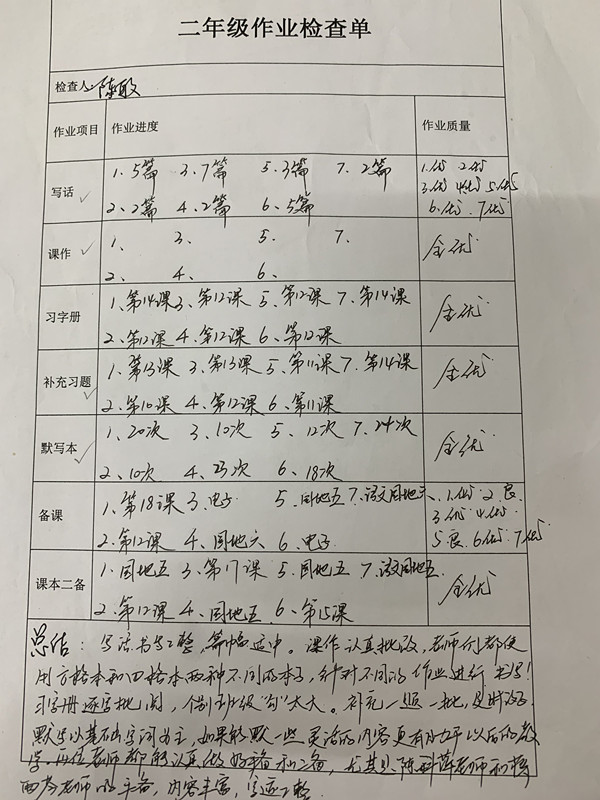 二年级作业检查单
检查人 陈敏
作业项目 作业进度 作业质量
写话 1、5篇 3、7篇 5、3篇 7、2篇 1.优 2.优
2、2篇 4、2篇 6、5篇 3.优 4.优 5.优
6.优 7.优
课作 1、 3、 5、 7、 全优
2、 4、 6、
习字册 1、第14课 3、第12课 5、第12课 7、第14课 全优
2、第12课 4、第12课 6、第12课
补充习题 1、第13课 3、第13课 5、第11课 7、第14课 全优
2、第10课 4、第12课 6、第11课
默写本 1、20次 3、10次 5、12次 7、24次 全优
2、10次 4、23次 6、18次
备课 1、第18课 3、电子 5、园地五 7、语文园地六 1.优 2.良
2、第12课 4、园地六 6、电子 3.优 4.优
5.良 6.优 7.优
课本二备 1、园地五 3、第17课 5、园地五 7、语文园地五 全优
2、第12课 4、园地五 6、第15课
总结：写话书写工整，篇幅适中。课作认真批改，老师们都使
用方格本和四格本两种不同的本子，针对不同的作业进行书写！
习字册逐字批阅，个别班级“勾”太大。补充一版一批，及时
默写以基础字词为主，如果能默一些灵活的内容更有助于以后的教
学。 老师都能认真做好 备和二备，尤其是陈 老师和
老师的 备，内容丰富，字迹工整.